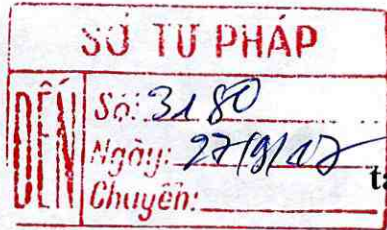 SỞ TƯ PHÁP
ĐẾN
Số: 3180
Ngày: 27/9/17
Chuyển: